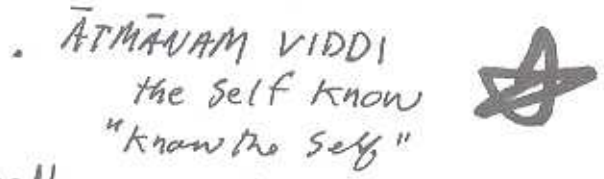 . ĀTMĀNAM VIDDI
the Self Know
"Know the Self"